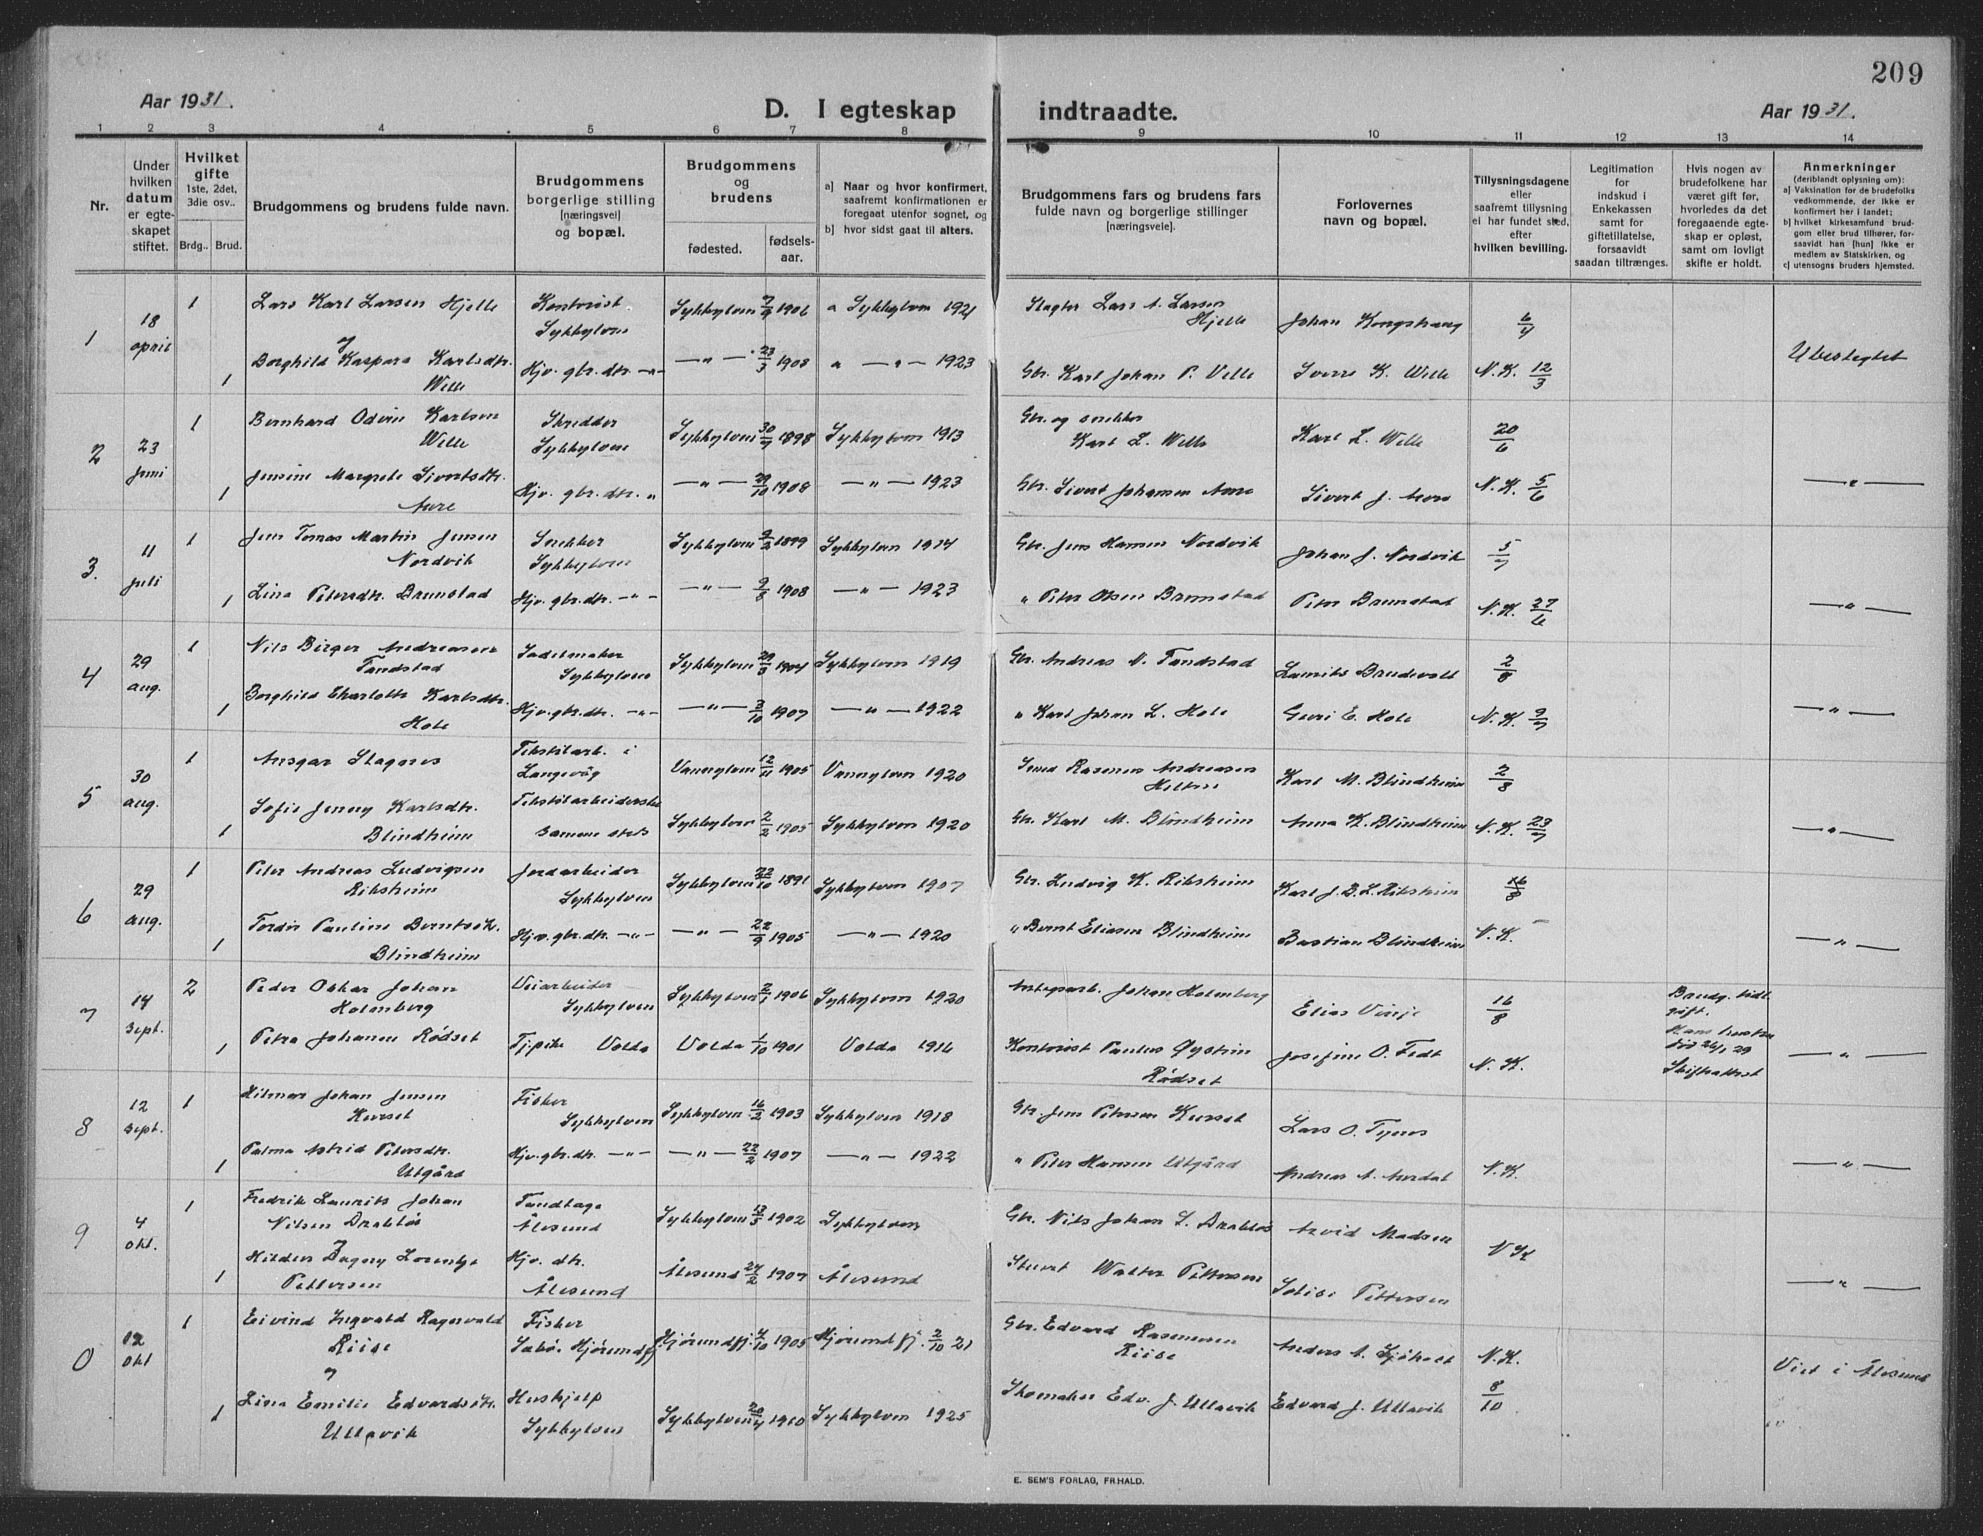 209
Aar 1931.
D. I egteskap indtraadte.
Aar 1931.
1 2 3 4 5 6 7 8 9 10 11 12 13 14
Nr.
Under hvilken datum er egteskapet stiftet.
Hvilket gifte
1ste, 2det, 3die osv..
Brdg.. Brud.
Brudgommens og brudens fulde navn.
Brudgommens borgerlige stilling [næringsvei] og bopæl.
Brudgommens og brudens
fødested.
fødsels-aar.
a] Naar og hvor konfirmert, saafremt konfirmationen er foregaat utenfor sognet, og
b] hvor sidst gaat til alters.
Brudgommens fars og brudens fars fulde navn og borgerlige stillinger [næringsveie].
Forlovernes navn og bopæl.
Tillysningsdagene eller saafremt tillysning ei har fundet sted, efter hvilken bevilling.
Legitimation for indskud i Enkekassen samt for giftetillatelse, forsaavidt saadan tiltrænges.
Hvis nogen av brudefolkene har været gift før, hvorledes da det foregaaende egteskap er opløst, samt om lovligt skifte er holdt.
Anmerkninger
(deriblandt oplysning om):
a] Vaksination for de brudefolks vedkommende, der ikke er konfirmert her i landet;
b] hvilket kirkesamfund brudgom eller brud tilhører, forsaavidt han [hun] ikke er medlem av Statskirken, og
c] utensogns bruders hjemsted.
1 18 april 1 Lars Karl Larsen Hjelle Kontorist Sykkylven Sykkylven 7/9 1906 a Sykkylven 1921 Slagter Lars A. Larsen Hjelle Johan Kongshaug 6/4
og
1 Borghild Kaspara Karlsdtr. Welle Hjv. gbr. dtr. —"— —"— 23/3 1908 a —"— 1923 Gbr. Karl Johan P. Velle Sverre K. Welle N.K. 12/3 Ubeslegtet
2 23 juni 1 Bernhard Odvin Karlsen Welle Skredder Sykkylven Sykkylven 30/9 1898 Sykkylven 1913 Gbr. og snekker Karl L. Welle Karl L. Welle 20/6
1 Jensine Margrete Sivertsdtr. Aure Hjv. gbr. dtr. " —"— 29/10 1908 —"— 1923 Gbr. Sivert Johansen Aure Sivert J. Aure N.K. 5/6 —"—
3. 11 juli 1 Jens Tomas Martin Jensen Nordvik Snekker Sykkylven Sykkylven 9/2 1899 Sykkylven 1914 Gbr. Jens Hansen Nordvik Johan J. Nordvik 5/7
1 Lina Petersdtr. Brunstad Hjv. gbr. dtr. —"— —"— 9/8 1908 —"— 1923 " Peter Olsen Brunstad Peter Brunstad N.K. 27/6 —"—
4 29 aug. 1 Nils Birger Andreasen Tandstad Sadelmaker Sykkylven Sykkylven 29/3 1904 Sykkylven 1919 Gbr. Andreas N. Tandstad Laurits Brudevoll 2/8
1 Borghild Charlotte Karlsdtr. Hole Hjv. gbr. dtr. —"— —"— 3/10 1907 —"— 1922 " Karl Johan L. Hole Guri E. Hole N.K. 9/7 —"—
5 30 aug. 1 Ansgar Slagnes Tekstilarb. i Langevåg Vannylven 12/11 1905 Vannylven 1920 Smed Rasmus Andreasen Karl M. Blindheim 2/8
1 Sofie Jenny Karlsdtr. Blindheim Tekstilarbeiderske samme sted Sykkylven 2/2 1905 Sykkylven 1920 Gbr. Karl M. Blindheim Anna K. Blindheim N.K. 23/7 —"—
6 29 aug. 1 Peter Andreas Ludvigsen Riksheim Jordarbeider Sykkylven Sykkylven 22/10 1891 Sykkylven 1907 Gbr. Ludvig K. Riksheim Karl J. B. L. Riksheim 16/8
1 Tordis Pauline Berntsdtr. Blindheim Hjv. gbr. dtr. —"— —"— 22/9 1905 —"— 1920 " Bernt Eliasen Blindheim Bastian Blindheim N.K. —"—
7 14 sept. 2 Peder Oskar Johan Holmberg Veiarbeider Sykkylven Sykkylven 2/1 1906 Sykkylven 1920 Anlegsarb. Johan Holmberg Elias Vinje 16/8 Brudg. tidl. gift. Hans hustru død 26/1 29 Skifteattest
1 Petra Johanne Rødset Tjpike Volda Volda 1/10 1901 Volda 1916 Kontorist Paulus Øystein Rødset Josefine O. Fedt N.K. —"—
8 12 sept. 1 Hilmar Johan Jensen Kurset Fisker Sykkylven Sykkylven 16/2 1903 Sykkylven 1918 Gbr. Jens Petersen Kurset Lars O. Tynes
1 Palma Astrid Petersdtr. Utgård Hjv. gbr. dtr. —"— —"— 22/2 1907 —"— 1922 " Peter Hansen Utgård Andreas A. Aurdal N.K. —"—
9 4 okt. 1 Fredrik Laurits Johan Nilsen Drabløs Tandlæge Ålesund Sykkylven 13/5 1902 Sykkylven Gbr. Nils Johan L. Drabløs Arvid Madsen N.K.
og
1 Hildur Dagny Lorentse Pettersen Hjv. dtr. Ålesund Ålesund 24/2 1907 Ålesund Stuert Walter Pettersen Solveig Pettersen —"—
0 12 okt 1 Eivind Ingvald Ragnvald Riise Fisker Sæbø Hjørundfj. Hjørundfj. 4/10 1905 Hjørundfj. 2/10 21 Gbr. Edvard Rasmussen Riise Anders A. Sjøholt N.K.
og
1 Lina Emilie Edvardsdtr. Ullavik Hushjelp Sykkylven Sykkylven 20/4 1910 Sykkylven 1925 Skomaker Edv. J. Ullavik Edvard J. Ullavik 8/10 Viet i Ålesund
E. SEM'S FORLAG, FR.HALD.